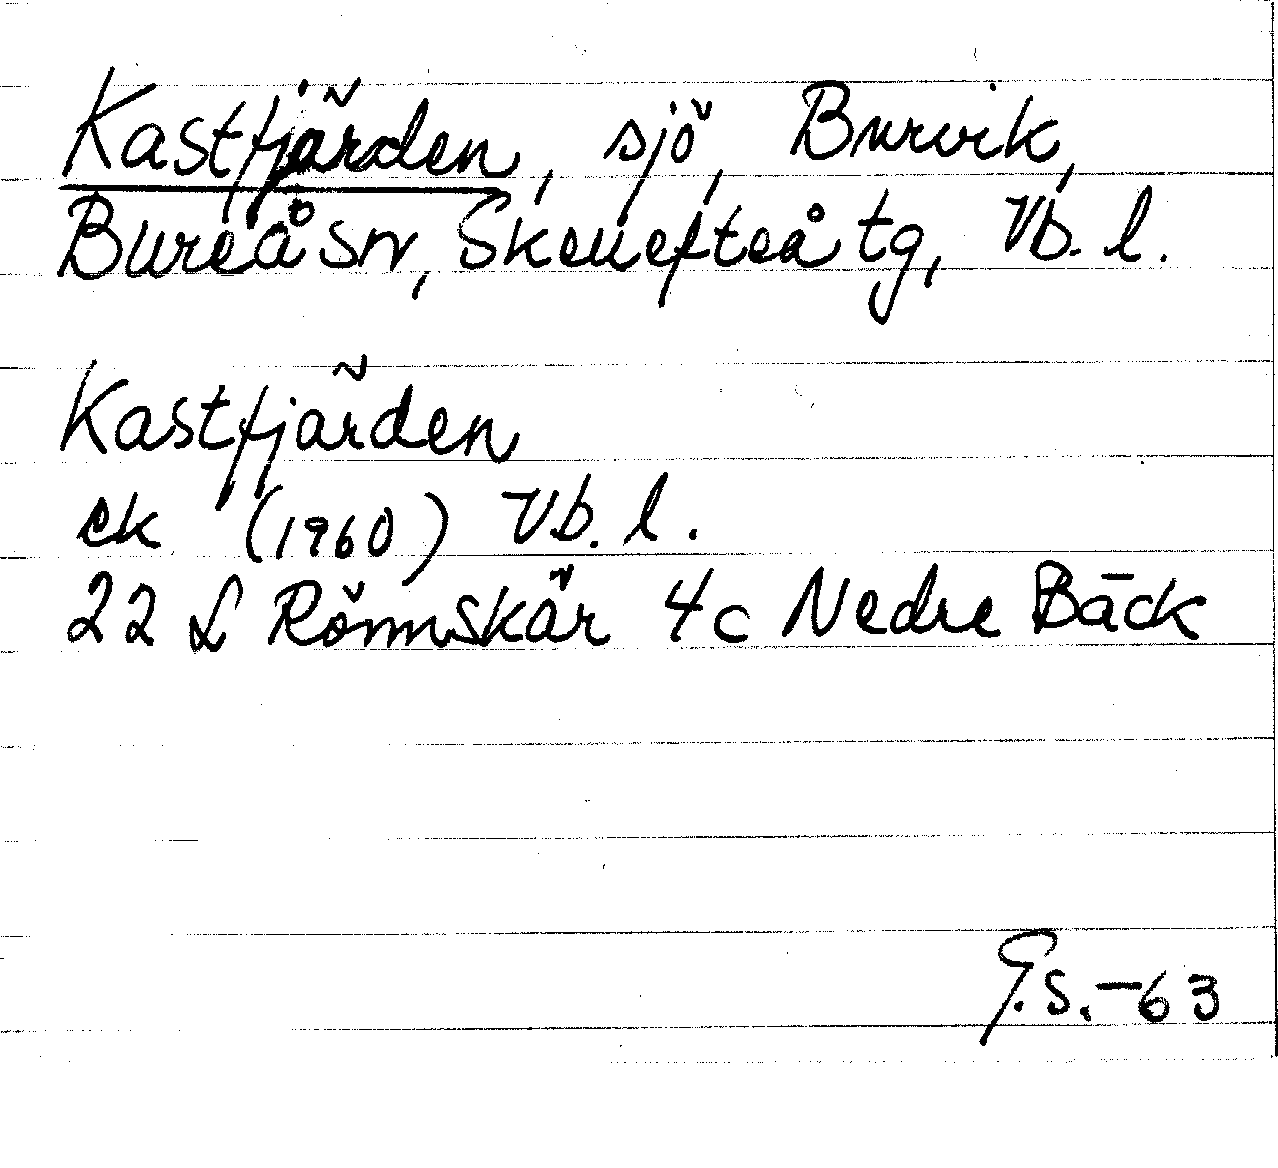 Kastfjärden, sjö, Burvik,
Bureå sn, Skellefteå tg, Vb. l.
Kastfjärden
ek (1960) Vb. l.
22 L Rönnskär 4c Nedre Bäck
G.S.-63